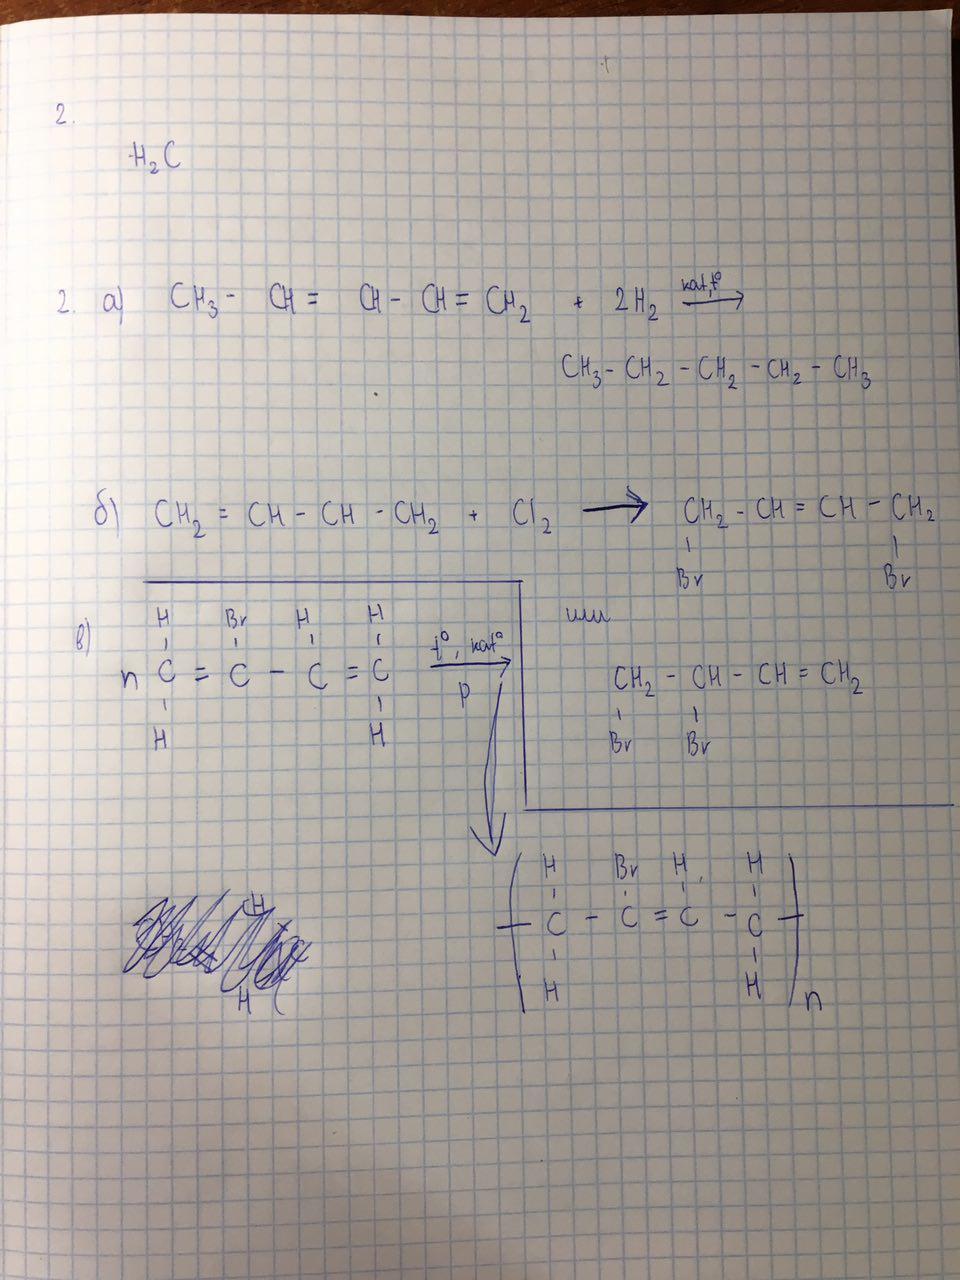 2.
H₂C
2. а) CH₃ - CH = CH - CH = CH₂ + 2H₂ kat, t° →
CH₃ - CH₂ - CH₂ - CH₂ - CH₃
б) CH₂ = CH - CH - CH₂ + Cl₂ → CH₂ - CH = CH - CH₂
Br Br
или
CH₂ - CH - CH = CH₂
Br Br
в) H Br H H
n C = C - C = C t°, kat° →
p
H H
H Br H H
( - C - C = C - C - )
H H n
H
H